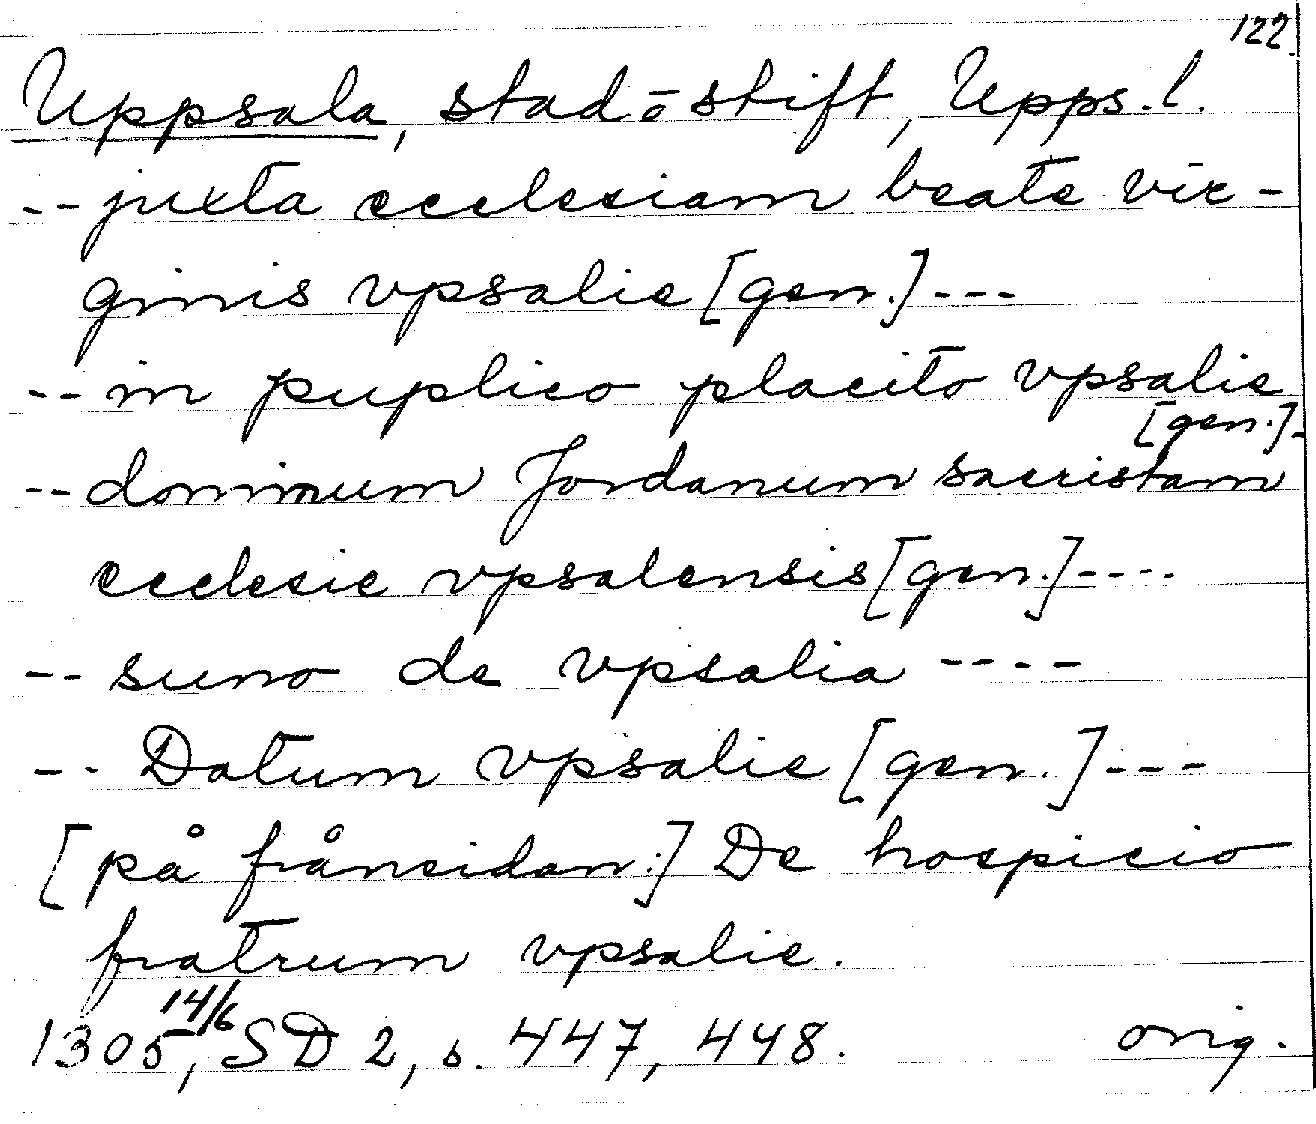 122.
Uppsala, stad o stift, Upps. l.
-- juxta ecclesiam beate vir-
ginis vpsalie [gen.] ---
-- in puplico placito vpsalie
[gen.]-
-- dominum Jordanum sacristam
ecclesie vpsalensis [gen.] ----
-- suno de vpsalia ----
-- Datum vpsalie [gen.] ---
[på frånsidan:] De hospicio
fratrum vpsalie.
1305 14/6, SD 2, s. 447, 448. orig.